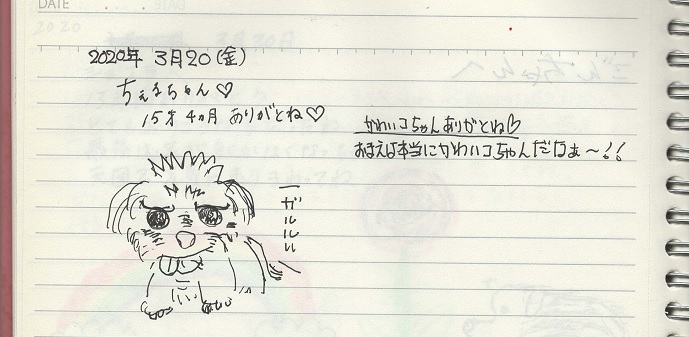 DATE
2020年 3月20(金)
ちぇるちゃん♡
15才4ヵ月 ありがとね♡
かわいコちゃんありがとね♡
おまえは本当にかわいコちゃんだなぁ〜!!
ーガルルルー